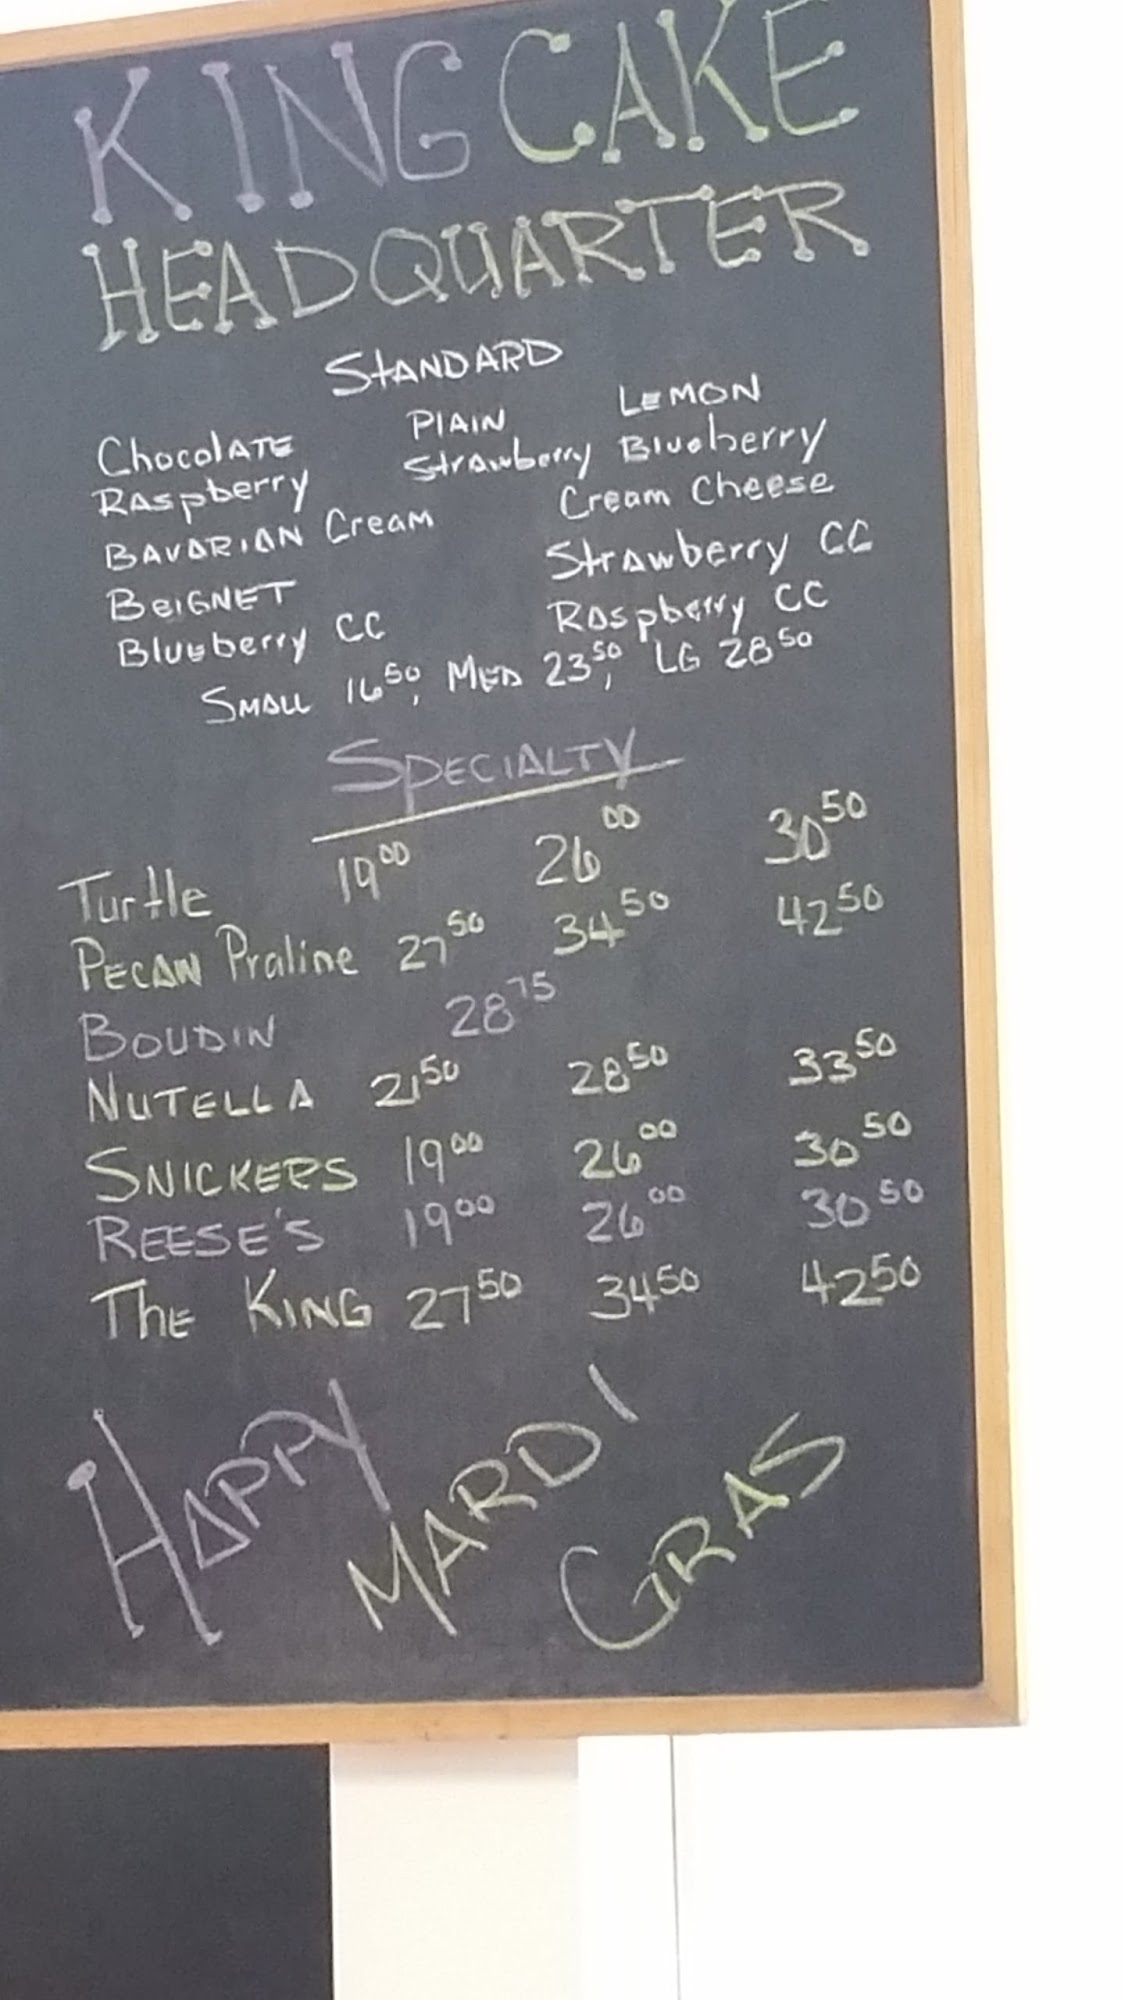 KING CAKE
HEADQUARTER
STANDARD
Chocolate PLAIN LEMON
Raspberry Strawberry Blueberry
BAVARIAN Cream Cream Cheese
BEIGNET Strawberry CC
Blueberry CC Raspberry CC
SMALL 16 50, MED 23 50, LG 28 50
SPECIALTY
Turtle 19 00 26 00 30 50
PECAN Praline 27 50 34 50 42 50
BOUDIN 28 75
NUTELLA 21 50 28 50 33 50
SNICKERS 19 00 26 00 30 50
REESE'S 19 00 26 00 30 50
THE KING 27 50 34 50 42 50
HAPPY
MARDI
GRAS